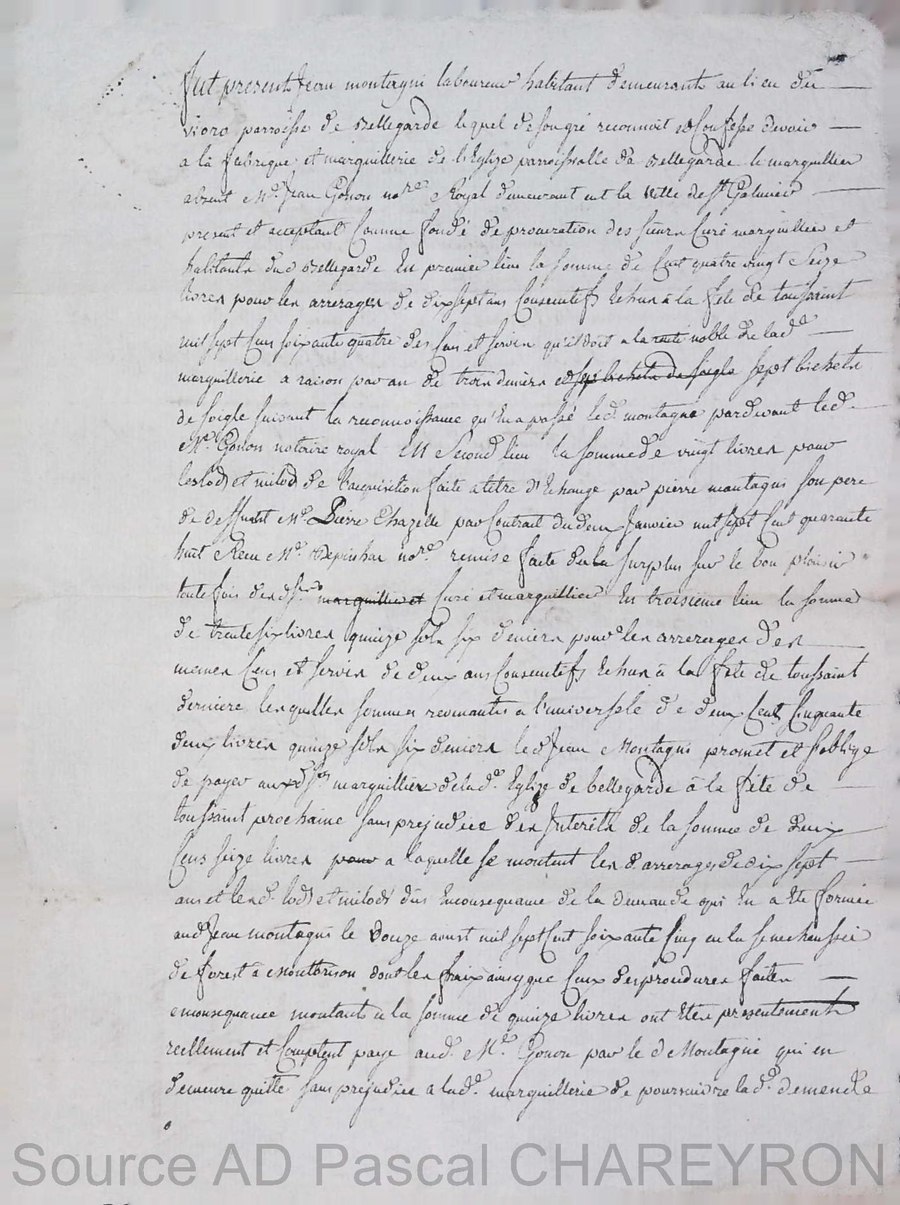 fut present Jean montagni laboureur habitant demeurant au lieu du
vioro parroisse de Bellegarde lequel de son gré reconnoit et Confesse devoir
a la fabrique et marquillerie de l'Eglize parroissialle de Bellegarde le marquillier
absent Me. Jean Gonon nore Royal demeurant en la ville de St Galmier
present et acceptant Comme fondé de procuration des sieurs Curé marguillier et
habitants dud Bellegarde En premier lieu la somme de Cent quatre vingt Seize
livres pour les arrerages de dix sept ans Consecutifs Echus à la fete de toussaint
mil sept Cens soixante quatre des Cens et servis qu'il doit a la rente noble de lade
marguillerie a raison par an de trois deniers et sep bichets de soigle sept bichets
de soigle suivant la reconnoissance qu'en a passé led. montagni pardevant led.
Me. Gonon notaire royal En Second lieu la somme de vingt livres pour
les lods et milods de l'acquisition faite a titre d'Echange par pierre montagni son pere
de deffunt Me. Pierre Chazelle par Contrait du deux Janvier mil sept Cent quarante
huit Recu Me. nore. remise faite du surplus sur le bon plaisir
toute fois desd. srs marguillier et Curé et marguillier En troisieme lieu la somme
de trente six livres quinze sols six deniers pour les arrerages des
memes Cens et servis de deux ans Consecutifs Echus à la fete de toussaint
derniere lesquelles sommes revenantes a l'universele de deux Cent Cinquante
deux livres quinze sols six deniers led Jean Montagni promet et s'oblige
de payer auxd. srs marguilliers de lade. Eglize de bellegarde à la fete de
toussaint prochaine sans prejudice des Interets de la somme de deux
Cens seize livres pour a laquelle se montent les d. arrerages de dix sept
ans et lesd. lods et milods dus En consequance de la demande qui En a Eté formée
aud Jean montagni le douze aoust mil sept Cent soixante Cinq en la senechaussée
de forest à Montbrison dont les fraix ainsy que Ceux des procedures faites
en consequance montants à la somme de quinze livres ont Etés presentement
reellement et Comptent payé aud. Me. Gonon par le d Montagni qui en
demeure quitte sans prejudice a lade. marguillerie de poursuivre lade. demande
Source AD Pascal CHAREYRON